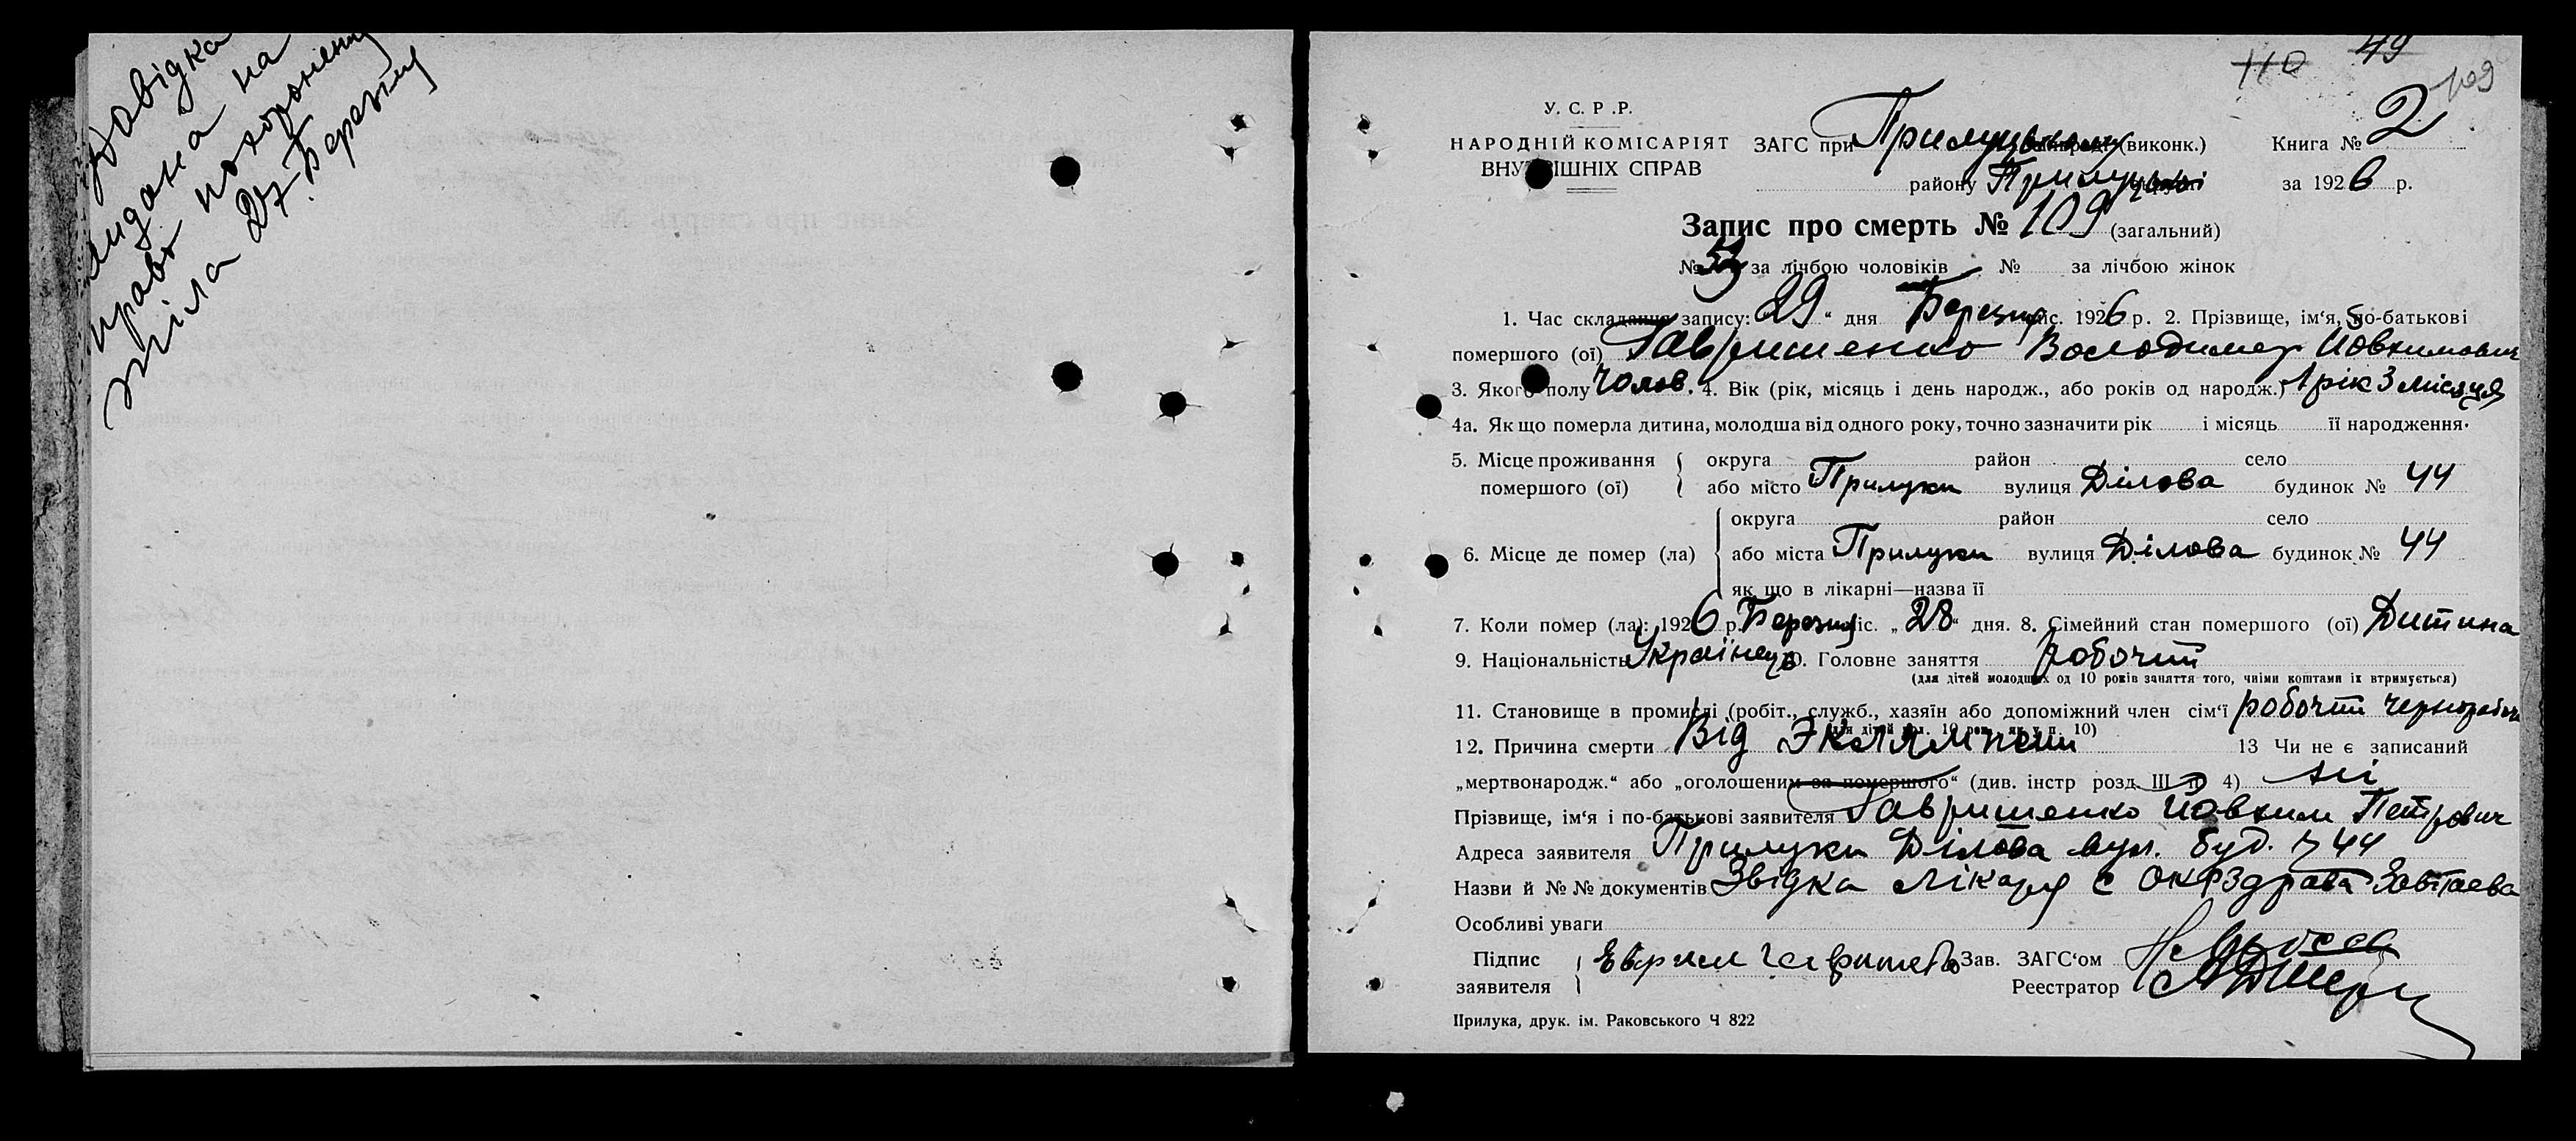 Довідка
видана на
право похоронення
тіла 27 Березня
110 49
109
У. С. Р. Р.
НАРОДНІЙ КОМІСАРІЯТ
ВНУТРІШНІХ СПРАВ
ЗАГС при Прилуцькому (виконк.) Книга № 2
району Прилуцькі за 1926 р.
Запис про смерть № 109 (загальний)
№ 53 за лічбою чоловіків № за лічбою жінок
1. Час складання запису: 29 “ дня Березня міс. 1926 р. 2. Прізвище, ім‘я, по-батькові
помершого (ої) Гавришенко Володимер Йовхимович
3. Якого полу Чолов. 4. Вік (рік, місяць і день народж., або років од народж.) 1 рік 3 місяця
4а. Як що померла дитина, молодша від одного року, точно зазначити рік і місяць її народження.
5. Місце проживання округа район село
помершого (ої) або місто Прилуки вулиця Ділова будинок № 44
округа район село
6. Місце де помер (ла) або міста Прилуки вулиця Ділова будинок № 44
як що в лікарні—назва її
7. Коли помер (ла): 1926 р. Березня міс. „ 28 “ дня. 8. Сімейний стан помершого (ої) Дитина
9. Національність Українець 10. Головне заняття робочий
(для дітей молодших од 10 років заняття того, чиїми коштами їх втримується)
11. Становище в промислі (робіт., служб., хазяїн або допоміжний член сім‘ї робочий чернороб
12. Причина смерти Від Эклямпсии 13 Чи не є записаний
„мертвонародж.“ або „оголошеним за помершого“ (див. інстр розд. III п 4) ні
Прізвище, ім‘я і по-батькові заявителя Гавришенко Йовхим Петрович
Адреса заявителя Прилуки Ділова вул. буд. № 44
Назви й № № документів Звідка лікаря с Окрздрава
Особливі уваги
Підпис
заявителя Гавришенко Зав. ЗАГС‘ом
Реестратор
Прилука, друк. ім. Раковського Ч 822